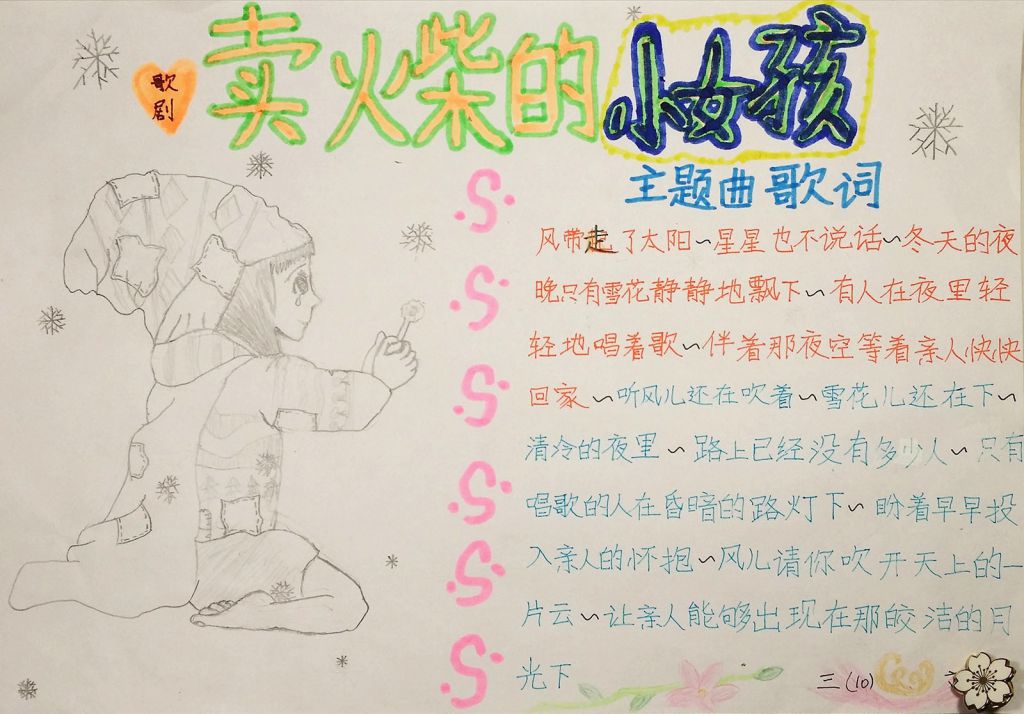 歌剧
卖火柴的小女孩
主题曲歌词
风带走了太阳~星星也不说话~冬天的夜
晚只有雪花静静地飘下~有人在夜里轻
轻地唱着歌~伴着那夜空等着亲人快快
回家~听风儿还在吹着~雪花儿还在下~
清冷的夜里~路上已经没有多少人~只有
唱歌的人在昏暗的路灯下~盼着早早投
入亲人的怀抱~风儿请你吹开天上的一
片云~让亲人能够出现在那皎洁的月
光下
三(10)